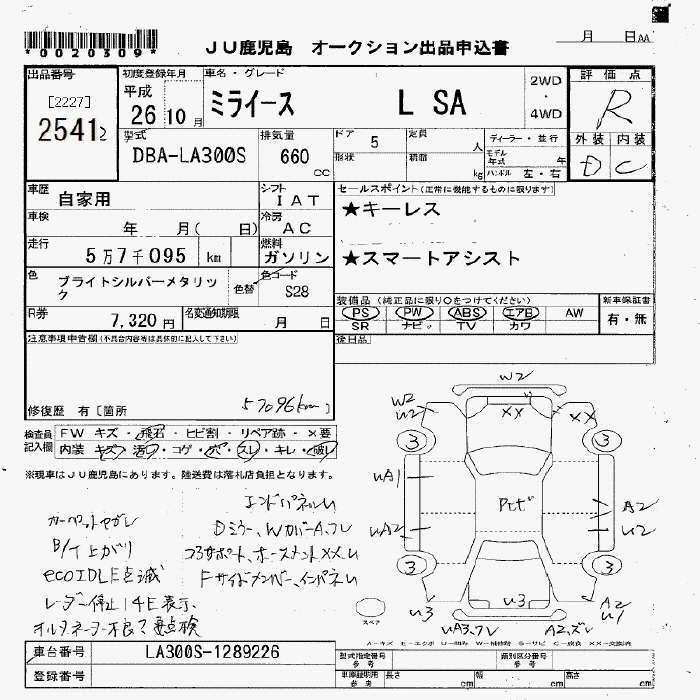 *0020309*
月 日AA
JU鹿児島 オークション出品申込書
出品番号
[2227]
2541
初度登録年月
平成
26 10 月
車名・グレード
ミライース L SA
2WD
・
4WD
評価点
R
外装 内装
D C
型式
DBA-LA300S
排気量
660
CC
ドア 5
定員 人
形状
積載 kg
ディーラー・並行
モデル年式 年
ハンドル 左・右
車歴
自家用
シフト
IAT
車検
年 月( 日)
冷房
AC
走行
5万7千095 km
燃料
ガソリン
色
ブライトシルバーメタリック
色替
色コード
S28
R券
7,320 円
名変通知期限
月 日
セールスポイント(正常に機能するものに限ります)
★キーレス
★スマートアシスト
装備品(純正品に限り○をつけてください)
PS PW ABS エアB AW
SR ナビ TV カワ
新車保証書
有・無
後日品
注意事項申告欄(不具合内容等は具体的に記入して下さい)
修復歴 有[箇所 57096km]
検査員記入欄
FW キズ・飛石・ヒビ割・リペア跡・×要
内装 キズ・汚・コゲ・穴・スレ・キレ・破レ
※現車はJU鹿児島にあります。陸送費は落札店負担となります。
カーペットヨゴレ
B/T上がり
ecoIDLE点滅
レーダー停止 14E表示、
オルタネーター不良?要点検
エンドパネルU
Dミラー、WカバーA、フレ
コアサポート、ホースメントXX、U
Fサイドメンバー、インパネU
W2
W2
U2
XX
XX
3
3
UA1
UA2
Pたて
A2
U2
3
3
U3
U3
A2
U1
UA3、フレ
A2、ズレ
スペア
A-キズ E-エクボ U-凹み W-補修跡 S-サビ C-腐食 XX-交換済
車台番号
LA300S-1289226
登録番号
型式指定番号
参考
類別区分番号
参考
車庫証明用
参考
長さ cm
幅 cm
高さ cm